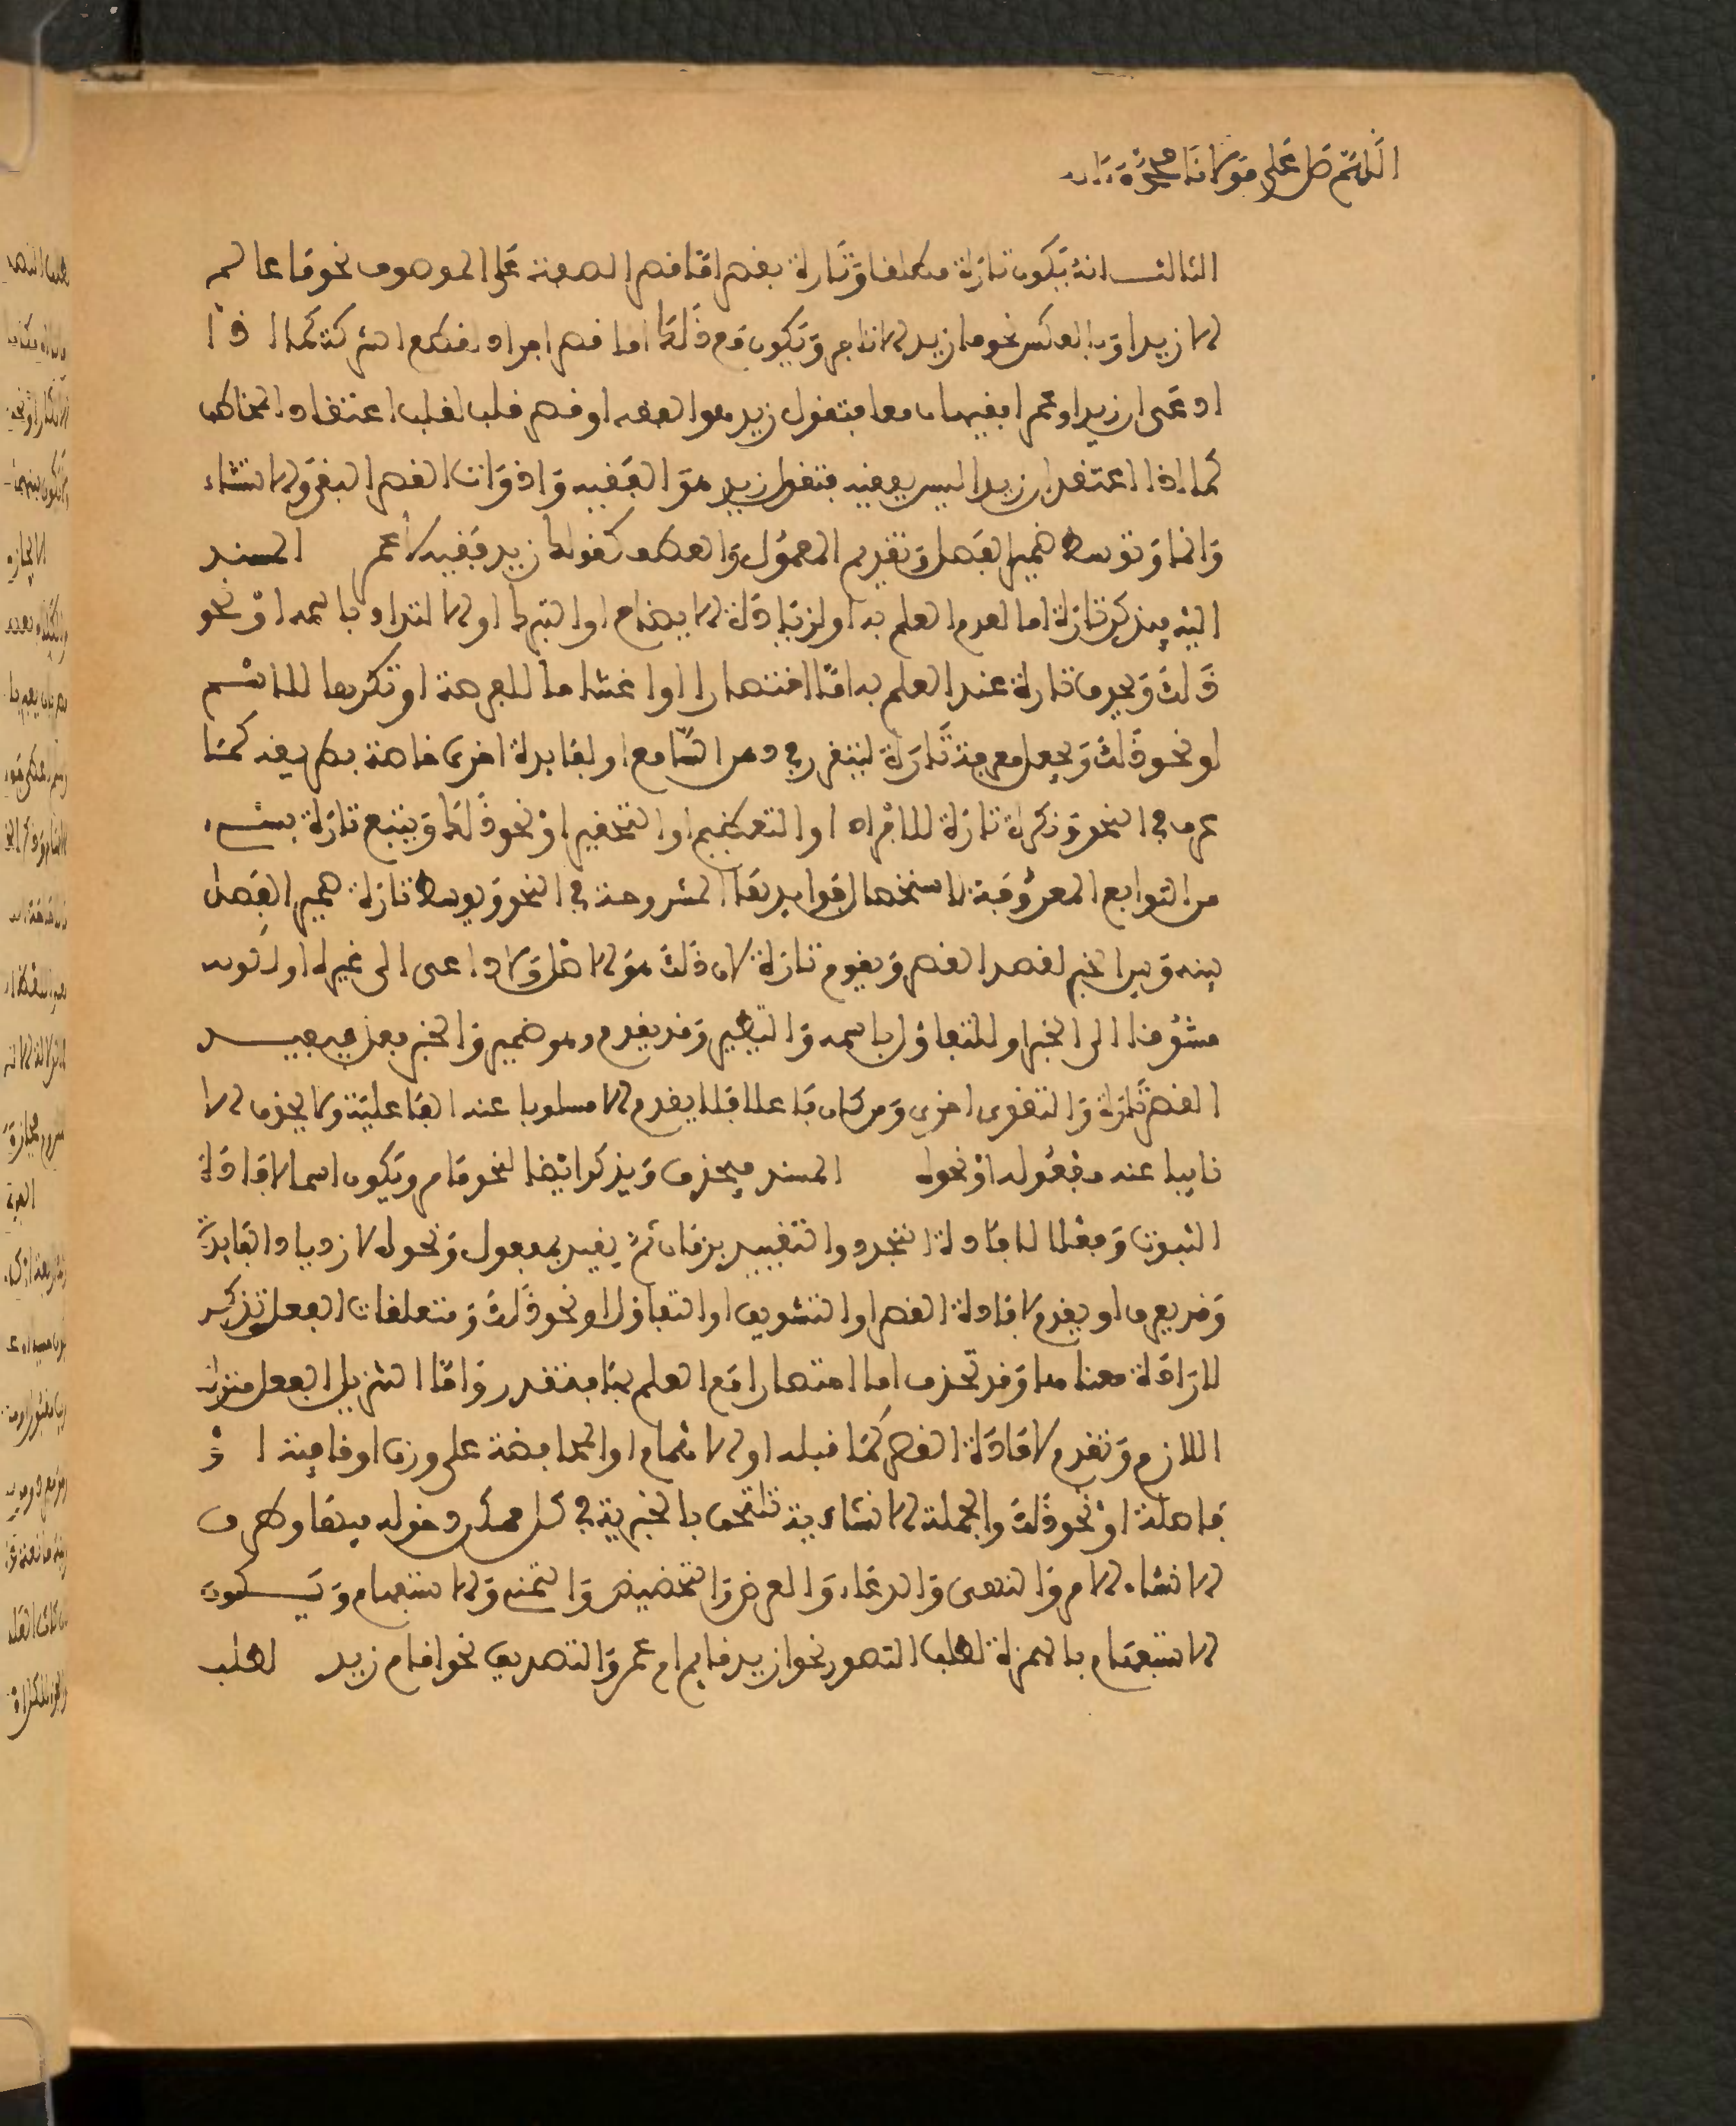 اللهم صل على مولانا محمد وءاله
الثالث انه يكون تارة مطلقا وتارة بقصر اما قصر الصفة على الموصوف نحو ما عالم
الا زيد او بالعكس نحو ما زيد الا تاجر ويكون مع ذلك اما قصر افراد لقطع الشركة كما اذا
ادعى ان زيدا وعمرا فقيهان معا فتقول زيد هو الفقيه او قصر قلب لقلب اعتقاد المخاطب
كما اذا اعتقد ان زيدا ليس بفقيه فتقول زيد هو الفقيه وادوات القصر النفي والاستثناء
وانما وتوسط ضمير الفصل وتقديم المعمول والعطف كقولك زيد فقيه لا عمر المسند
اليه يذكر تارة اما لعدم العلم به او لزيادة الايضاح او التبرك او الالتذاذ باسمه او نحو
ذلك ويحذف تارة عند العلم به اما اختصارا او اغتناما للفرصة او تكريما للاسم
او نحو ذلك ويجعل معرفة تارة ليتقرر في ذهن السامع او لفايدة اخرى خاصة بطريقه كما
عرف في النحو ونكرة تارة للافراد او التعظيم او التحقير او نحو ذلك ويتبع تارة بشيء
من التوابع المعروفة لاستحضار فوايدها المشروحة في النحو ويوسط تارة ضمير الفصل
بينه وبين الخبر لقصد القصر ويقدم تارة لان ذلك هو الاصل ولا داعى الى غيره او لكونه
مشوقا الى الخبر او للتفاؤل باسمه والتطير وقد يقدم وهو ضمير والخبر فعل فيفيد
القصر تارة والتقوى اخرى ومن كان فاعلا فلا يقدم الا مسلوبا عنه الفاعلية ولا يحذف الا
نايبا عنه مفعوله او نحوه المسند فيحذف ويذكر ايضا لنحو ما مر ويكون اسما لافادة
الثبوت وفعلا لافادة التجدد والتقييد بزمان ثم يقيد بمفعول ونحوه لازدياد الفايدة
وقد يعرف او يقدم لافادة القصر او التشويق او التفاؤل او نحو ذلك ومتعلقات الفعل تذكر
لارادة معناها وقد تحذف اما اختصارا مع العلم بها فتقدر واما لتنزيل الفعل منزلة
اللازم وتقدم لافادة القصر كما قبله او الاهتمام او المحافظة على وزن او قافية او
فاصلة او نحو ذلك والجملة الانشاءية تلتحق بالخبرية في كل ممكن دخوله فيها وطرق
الانشاء الامر والنهى والدعاء والعرض والتحضيض والتمنى والاستفهام ويكون
الاستفهام بالهمزة لطلب التصور نحو ازيد قايم ام عمر والتصديق نحو اقام زيد لطلب